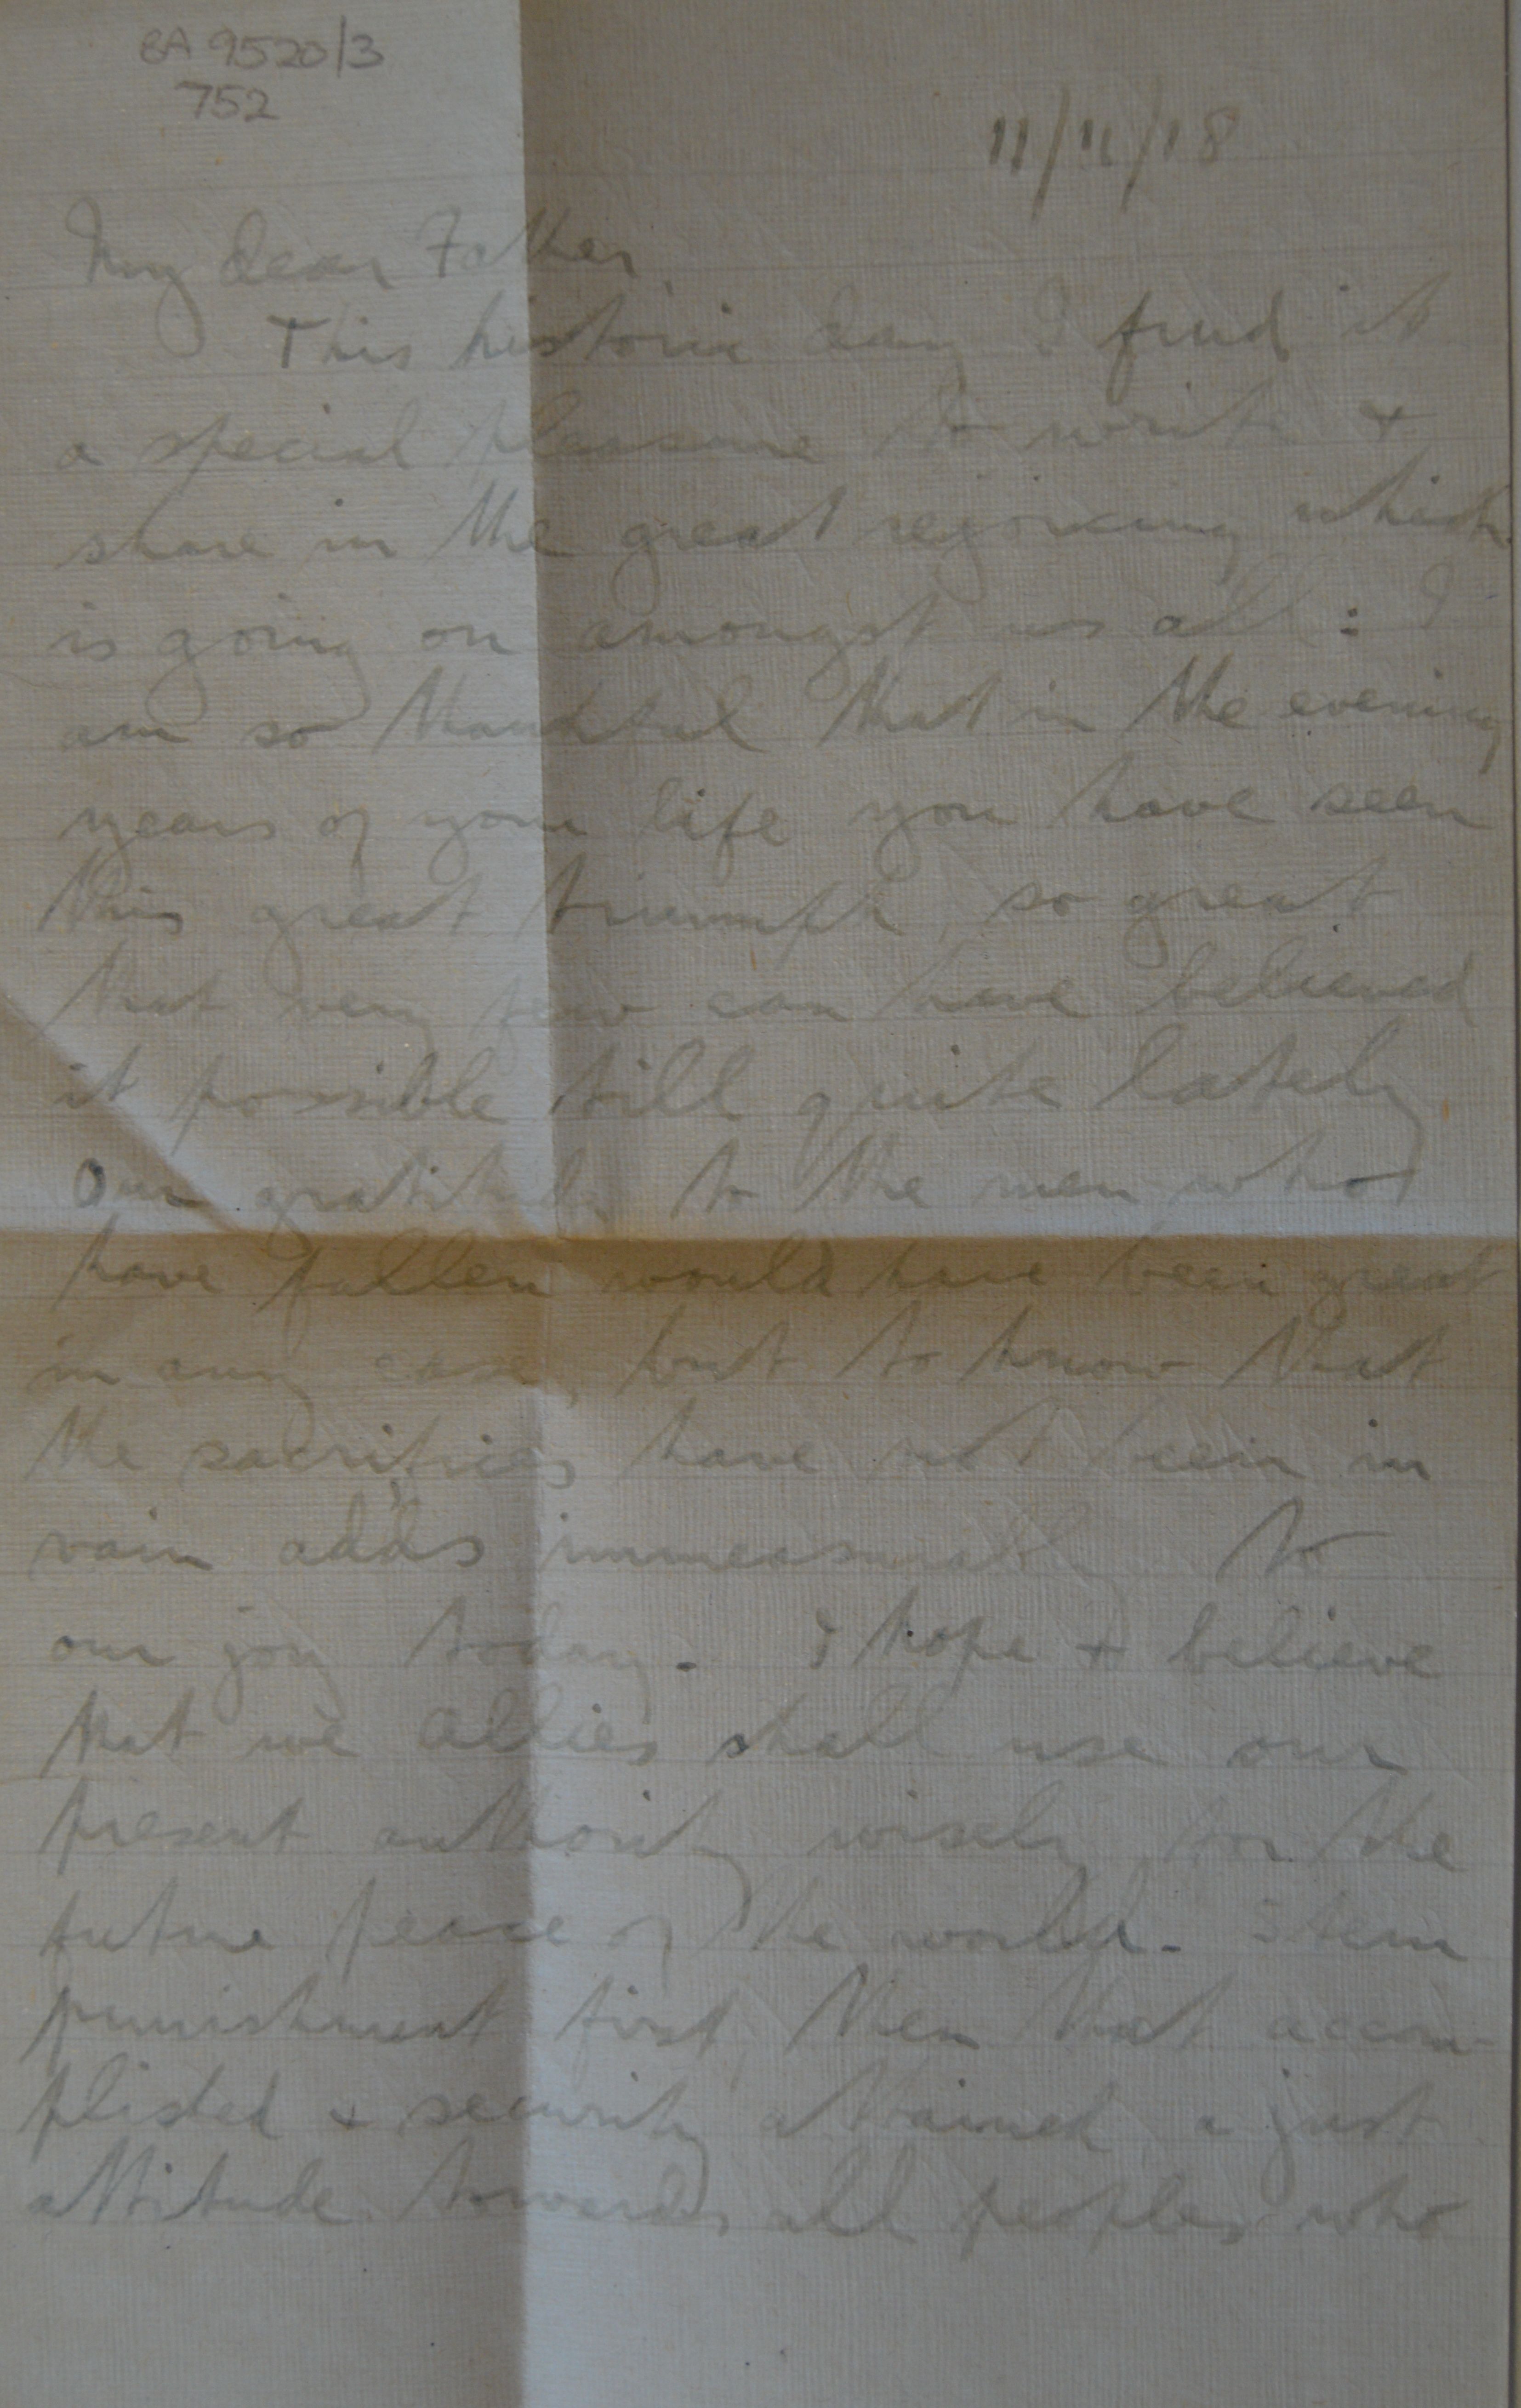 BA 9520/3
752
11/11/18
My dear Father,
This historic day I find it
a special pleasure to write +
share in the great rejoicing which
is going on amongst us all: I
am so thankful that in the evening
years of your life you have seen
this great triumph, so great
that very few can have believed
it possible till quite lately
Our gratitude to the men who
have fallen would have been great
in any case, but to know that
the sacrifices have not been in
vain adds immeasurably to
our joy today. I hope + believe
that we Allies shall use our
present authority wisely for the
future peace of the world. Stern
punishment first, then that accom-
plished + security attained, a just
attitude towards all peoples who